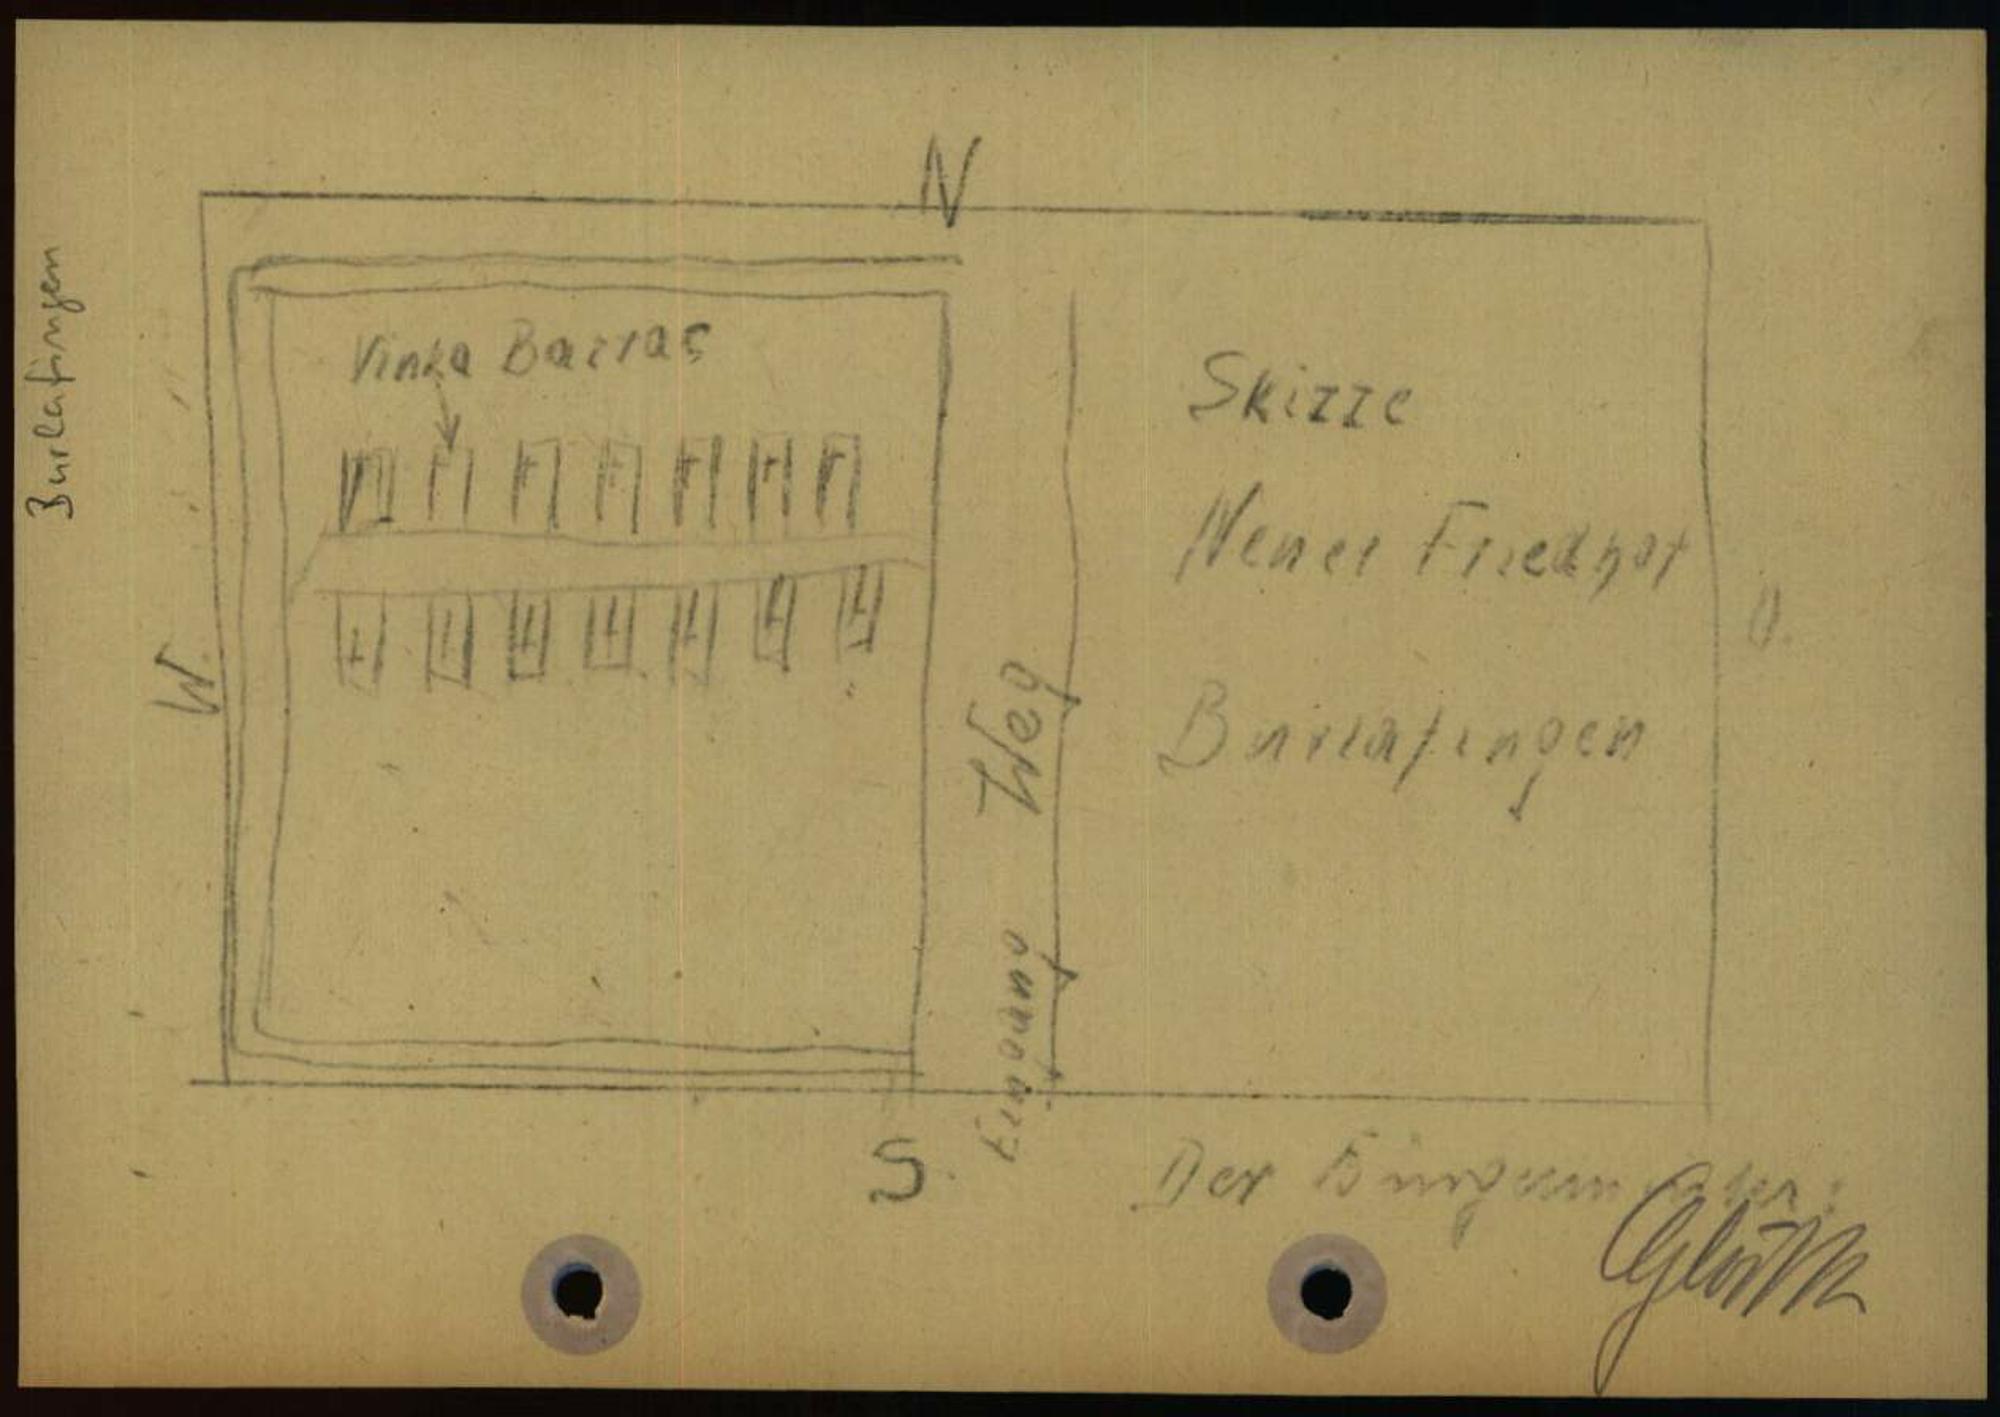 Burlafingen
N
Vinka Barras
Skizze
Neuer Friedhof
Burlafingen
W.
O.
Weg
Eingang
S.
Der Bürgermeister: